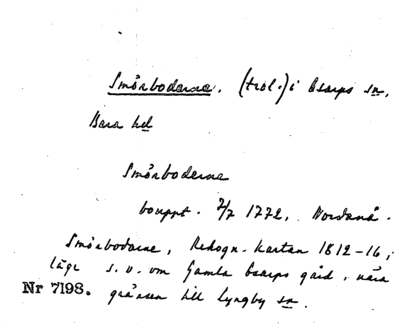 Smörbodarna. (trol.) i Esarps sn.
Bara hd
Smörboderne
bouppt. 2/7 1772, Nordanå.
Smörbodarne, Rekogn. kartan 1812-16;
läge s. v. om Gamla Esarps gård, nära
Nr 7198. gränsen till Lyngby sn.